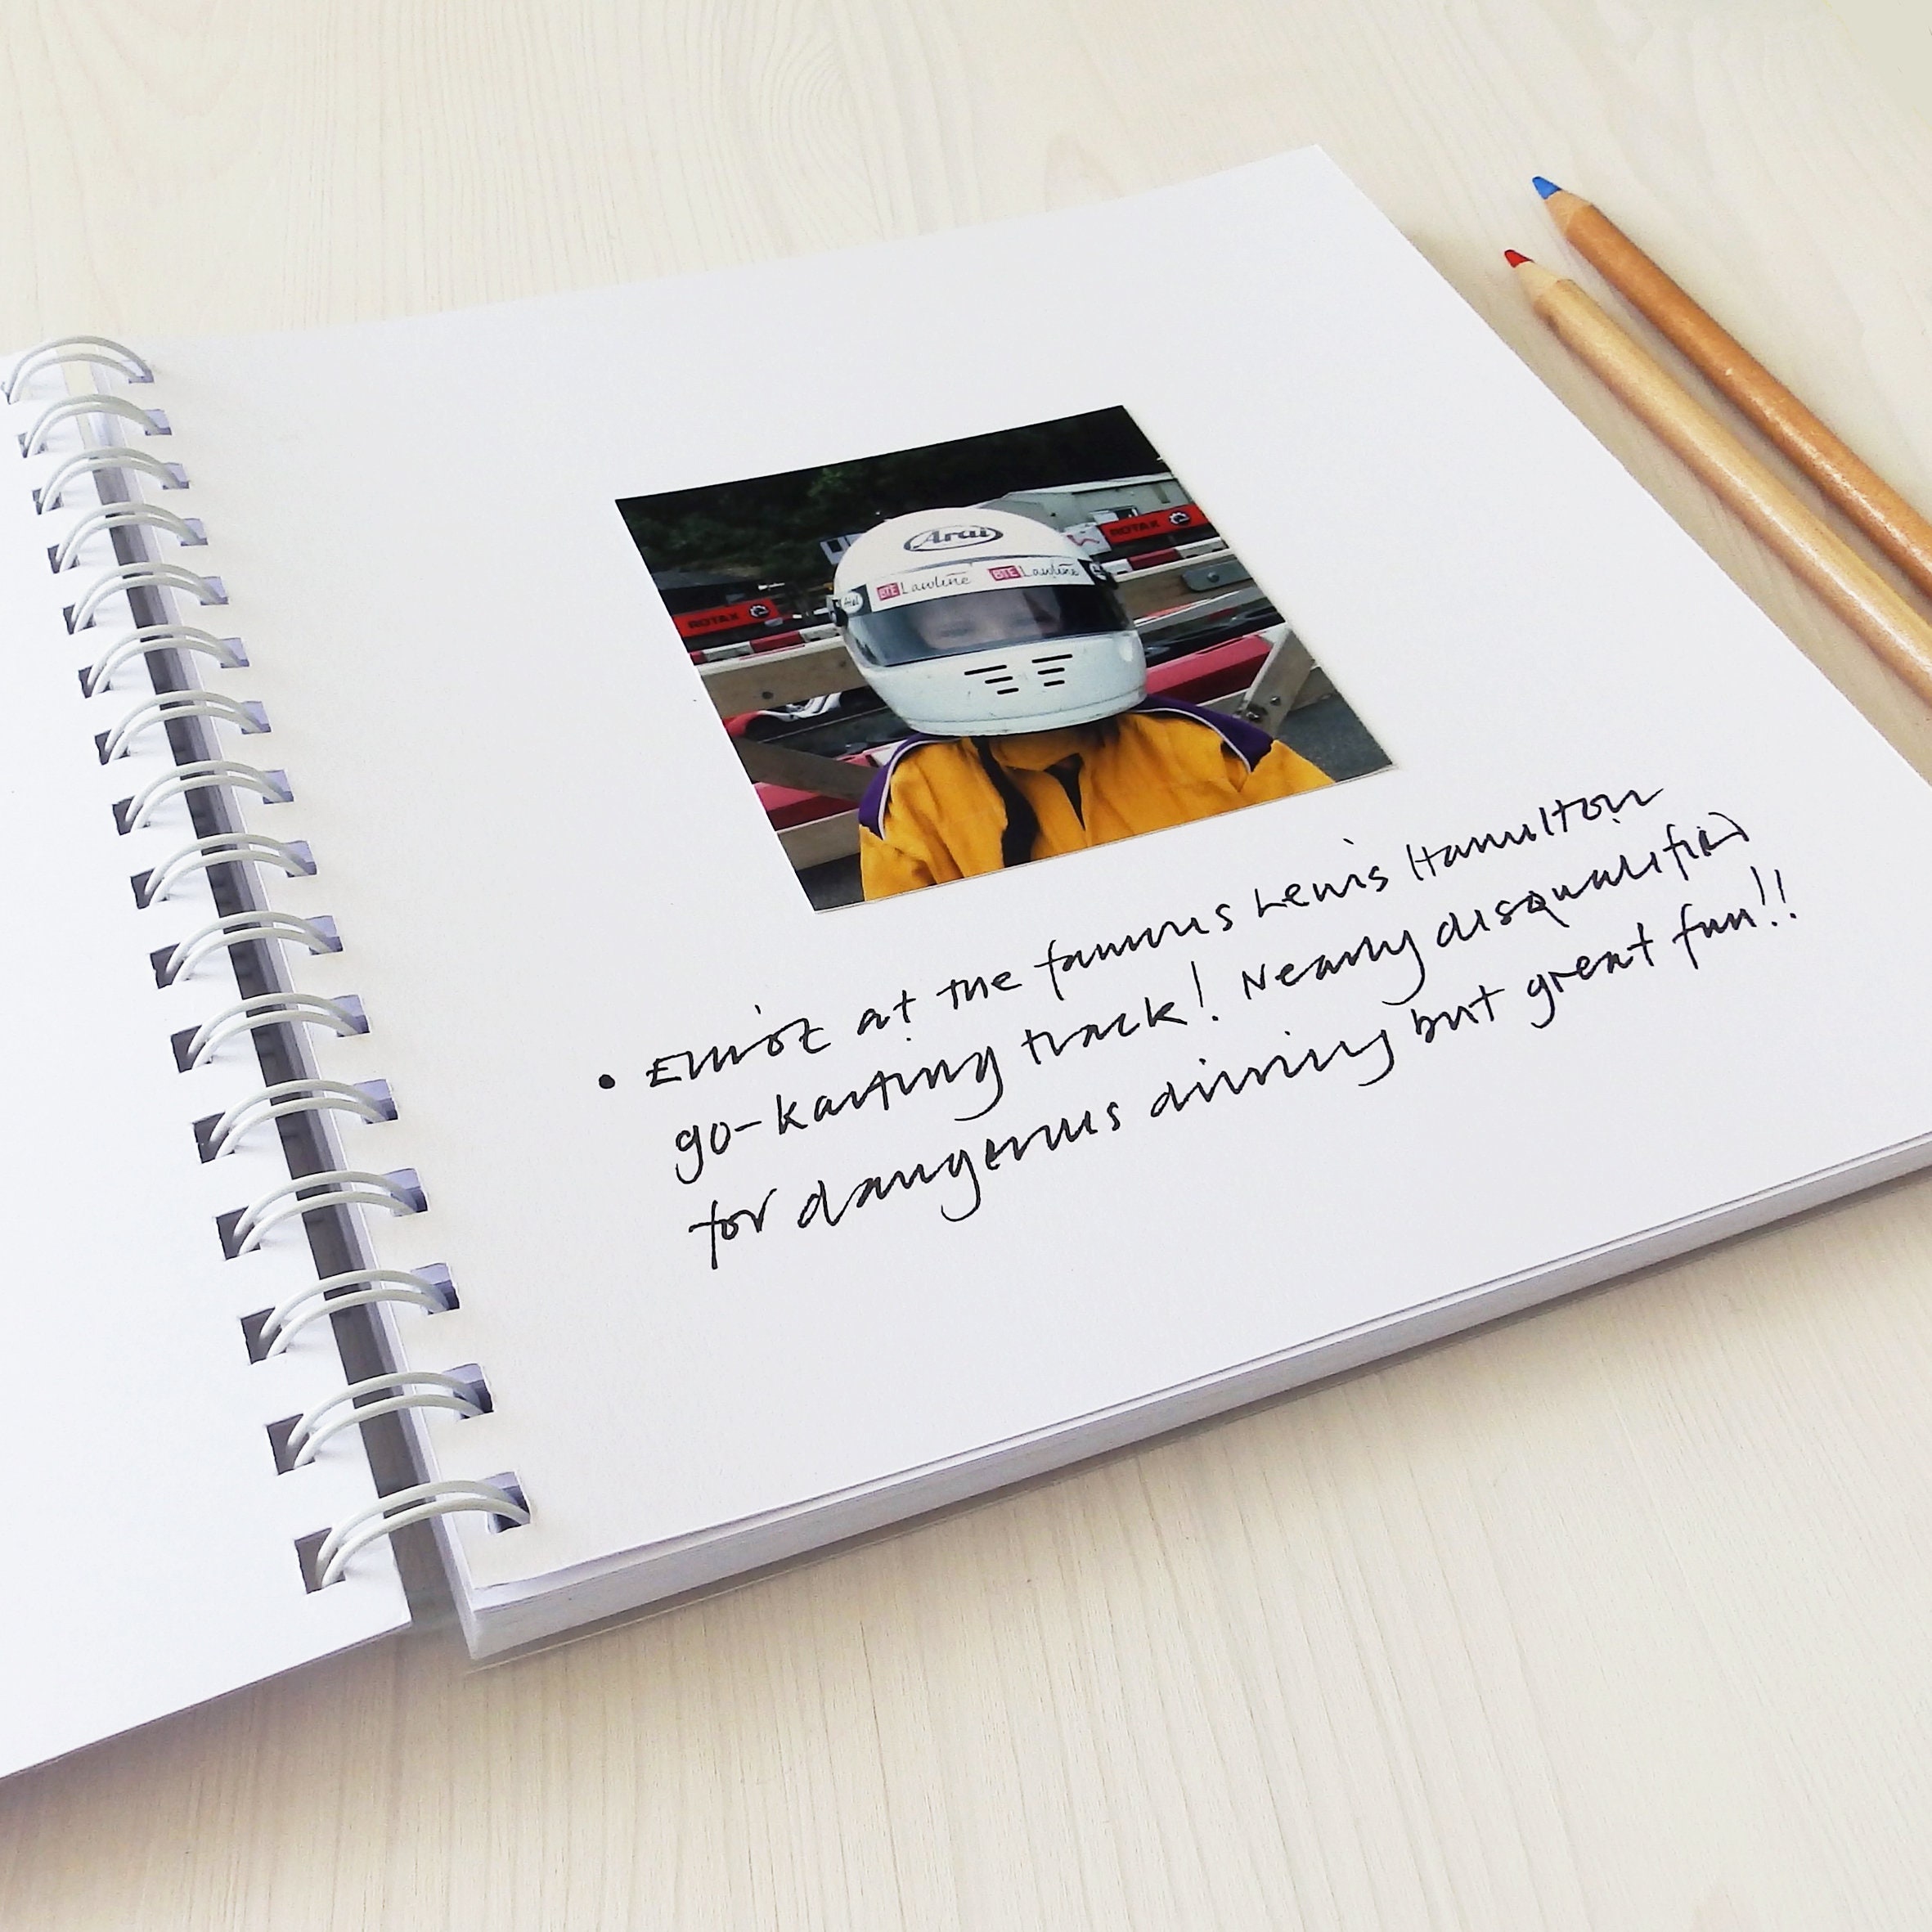 Arai
BTE Lawline BTE Lawline
ROTAX
ROTAX
• Elliot at the famous Lewis Hamilton
go-karting track! Nearly disqualified
for dangerous driving but great fun!!